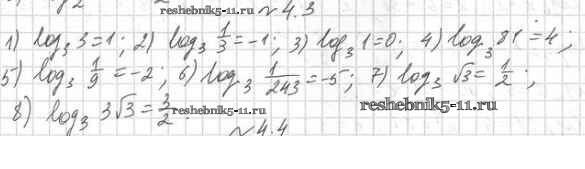 №4.3
reshebnik5-11.ru
1) log₃ 3=1; 2) log₃ 1/3=-1; 3) log₃ 1=0; 4) log₃ 81=4;
5) log₃ 1/9=-2; 6) log₃ 1/243=-5; 7) log₃ √3=1/2;
8) log₃ 3√3=3/2.
reshebnik5-11.ru
reshebnik5-11.ru
№4.4